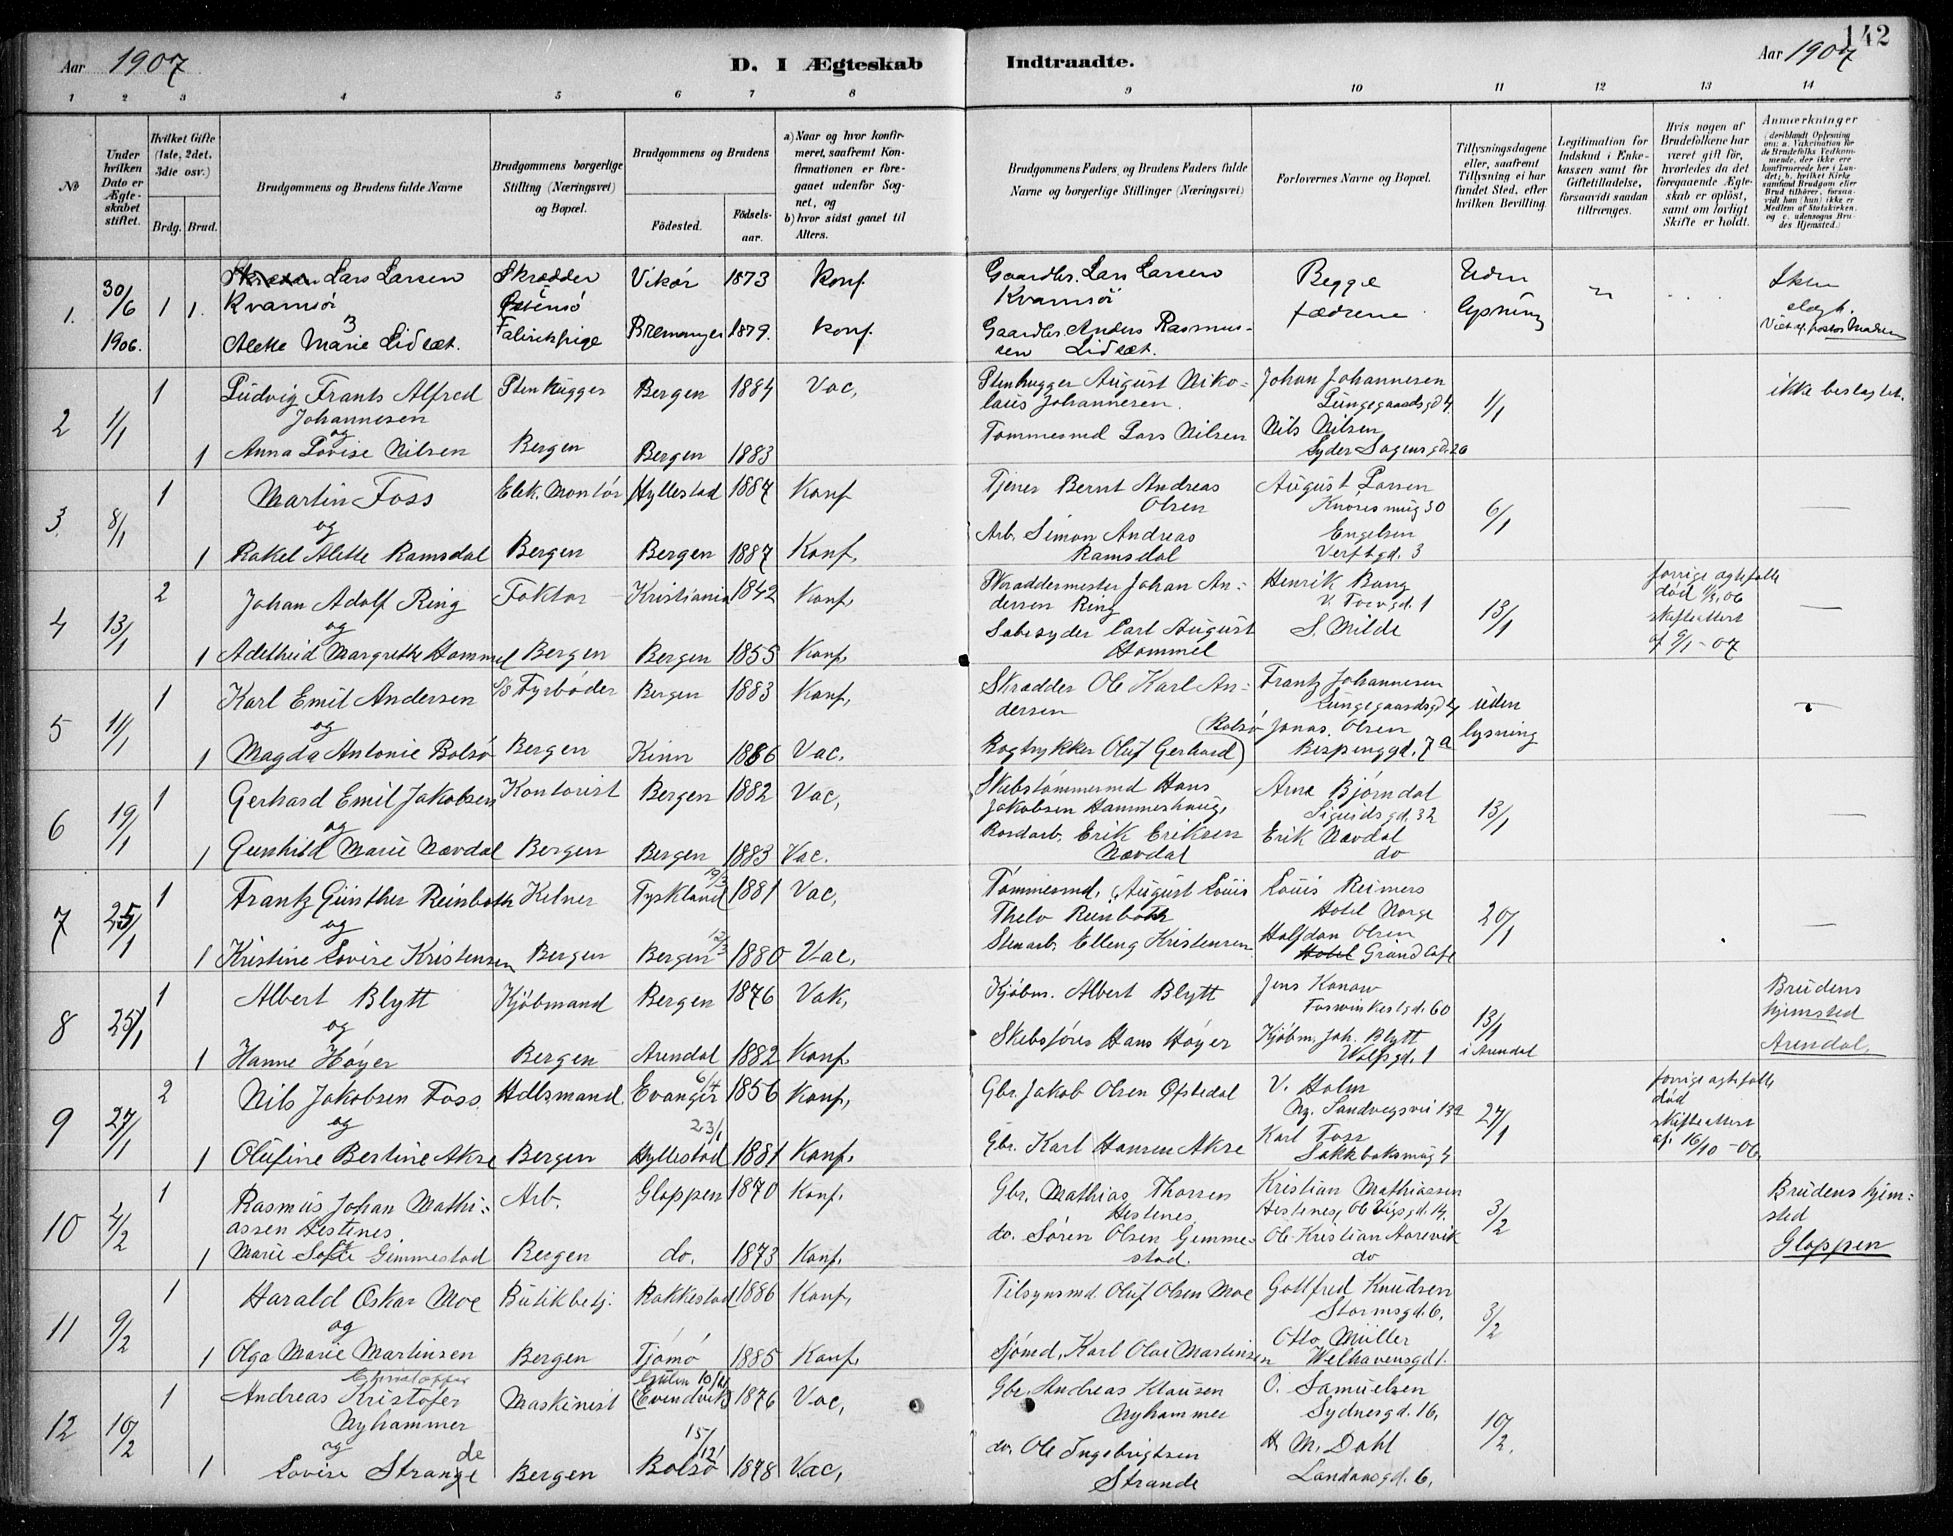 142
Aar 1907
D. I Ægteskab
Indtraadte.
Aar 1907
1 2 3 4 5 6 7 8 9 10 11 12 13 14
No
Under hvilken Dato er Ægteskabet stiftet.
Hvilket Gifte (1ste, 2det, 3die osv.)
Brdg. Brud.
Brudgommens og Brudens fulde Navne
Brudgommens borgerlige Stilling (Næringsvei) og Bopæl.
Brudgommens og Brudens
Fødested.
Fødselsaar.
a) Naar og hvor konfirmeret, saafremt Konfirmationen er foregaaet udenfor Sognet, og
b) hvor sidst gaaet til Alters.
Brudgommens Faders, og Brudens Faders fulde Navne og borgerlige Stillinger (Næringsvei)
Forlovernes Navne og Bopæl.
Tillysningsdagene eller, saafremt Tillysning ei har fundet Sted, efter hvilken Bevilling.
Legitimation for Indskud i Enkekassen samt for Giftetilladelse, forsaavidt saadan tiltrænges.
Hvis nogen af Brudefolkene har været gift før, hvorledes da det foregaaende Ægteskab er opløst, samt om lovligt Skifte er holdt.
Anmærkninger
(deriblandt Oplysning om: a. Vakcination for de Brudefolks Vedkommende, der ikke ere konfirmerede her i Landet; b. hvilket Kirkesamfund Brudgom eller Brud tilhører, forsaavidt han (hun) ikke er Medlem af Statskirken, og c. udensogns Brudes Hjemsted.)
1. 30/6 1906. 1 1. Lars Larsen Skrædder Vikør 1873 konf. Gaardbr. Lars Larsen Begge Uden Ikke
Kvamsöi Kvamsöi fædrene Lysning slægt.
Alette Marie Lidsæt. Fabrikpige Bremanger 1879. konf. Gaardbr. Anders Rasmussen Lidsæt. Viet af pastor Madsen
2 1/1 1 Ludvig Frants Alfred Stenhugger Bergen 1884 Vac, Stenhugger August Nikolaus Johannesen. Johan Johannesen 1/1 ikke beslægtet.
Johannesen Lungegaardsgd 4
og
1 Anna Lovise Nilsen Bergen Bergen 1883 Tømmesmd Lars Nilsen Nils Nilsen
Lyder Sagensgd. 26
3. 8/1 1 Martin Foss Elek. Montör Hyllestad 1884 Konf Tjener Bernt Andreas August Larsen 6/1 —
og Olsen Knøsesmug 30
Arb. Simon Andreas Engelsen
1 Rakel Alette Ramsdal Bergen Bergen 1887 Konf, Ramsdal Verftgd. 3
4 13/1 2 Johan Adolf Ring Faktor Kristiania 1842 Konf, Skræddermester Johan Andersen Ring Henrik Bang 13/1 forrige ægtefælle —
og V. Torvgd. 1 død 1/3. 06
skifteattest
1 Adelheid Margrethe Hammel Bergen Bergen 1855 Konf, Carl August Hammel S. Milde af 9/1 - 07
5 11/1 1 Karl Emil Andersen S/S Fyrbøder Bergen 1883 Konf, Skrædder Ole Karl Andersen Frantz Johannesen uden —
og Lungegaardsgd 4 lysning
1 Magda Antonie Bolsø Bergen Kinn 1886 Vac. Bogtrykker Oluf Gerhard (Bolsø) Jonas Olsen
Bispenggd. 7 a
6 19/1 1 Gerhard Emil Jakobsen Kontorist Bergen 1882 Vac, Skibstømmermd Hans Jakobsen Hammershaug, Arne Bjørndal 13/1 —
og Sigurdsgd. 32
1 Gunhild Marie Nævdal Bergen Bergen 1883 Vac. Erik Eriksen Nævdal Erik Nævdal
do
7 25/1 1 Frantz Günther Reinboth Kelner Tyskland 1881 Vac, Tømmesmd, August Louis Louis Reimers 20/1 —
og Thelo Reinboth Hotel Norge
1 Kristine Lovise Kristensen Bergen Bergen 1880 Vac, Stenarb. Elling Kristensen Halfdan Olsen
Hotel Grand Café
8 25/1 1 Albert Blytt Kjøbmand Bergen 1876 Vak, Kjøbm. Albert Blytt Jens Konow 13/1 Brudens
og Fosvinkelsgd. 60 i Arendal hjemsted
1 Hanne Høyer Bergen Arendal 1882 Konf. Skibsføres Hans Høyer Kjøbm. Joh. Blytt Arendal.
9 27/1 2 Nils Jakobsen Foss. Hdlsmand. Evanger 6/4 1856 Konf, Gbr. Jakob Olsen Øfstedal V. Holm 27/1 forrige ægtefælle
og 23/1 Ny. Sandvegsvei 13a død
Karl Foss skifteattest
1 Olufine Bertine Akre Bergen Hyllestad 1881 Konf. Gbr. Karl Hansen Akre af. 16/10 - 06
10 2/2 1 Rasmus Johan Mathiassen Hestenes. Arb. Gloppen 1870 Konf. Gbr. Mathias Thorsen Hestenes Kristian Mathiassen 3/2 Brudens hjemsted
1 Marie Sofie Gimmestad Bergen do. 1873 Konf. do. Søren Olsen Gemmestad. Ole Kristian Aarevik Gloppen
do
11 9/2 1 Harald Oskar Moe Butikbetj. Rakkestad 1886 Konf, Tilsynsmd. Oluf Olsen Moe Gottfred Knudsen 3/2
og Stormsgd. 6,
1 Olga Marie Martinsen Bergen Tjømø 1885 Konf, Sjømd, Karl Olai Martinsen Otto Müller
Welhavensgd 1.
12 10/2 1 Andreas Kristofer Maskinist (Evindvik) 1876 Vac, Gbr. Andreas Klausen O. Samuelsen 10/2.
Nyhammer Nyhammer Sydnesgd. 16,
og 15/12
1 Lovise Strande Bergen Bolsø 1878 Vac, do. Ole Ingebrigtsen H. M. Dahl
Strande Landaasgd. 6,